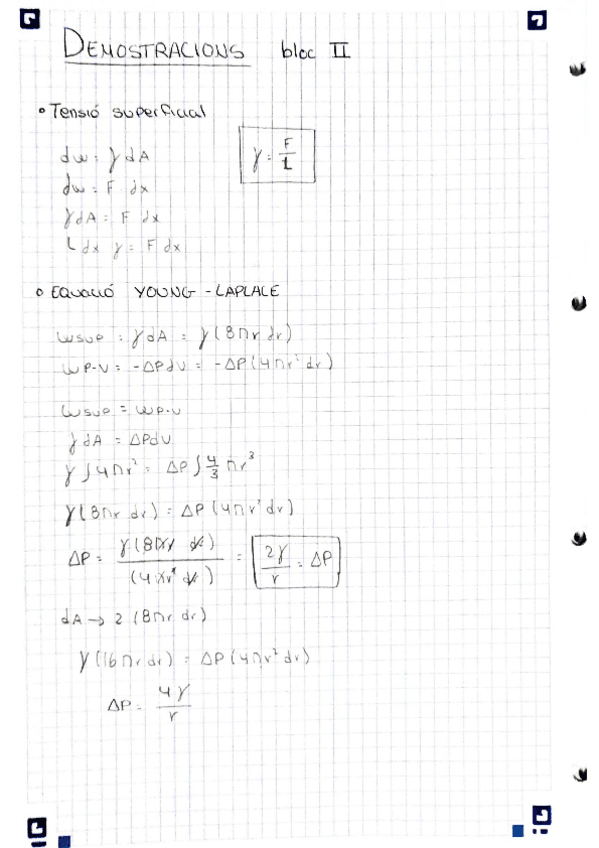 DEMOSTRACIONS bloc II
• Tensió superficial
dw = γ dA
γ = F/L
dw = F dx
γ dA = F dx
L dx γ = F dx
• EQUACIÓ YOUNG - LAPLACE
wsup = γ dA = γ (8πr dr)
wP-V = -ΔPdV = -ΔP(4πr² dr)
wsup = wP-V
γ dA = ΔPdV
γ ∫ 4πr² = ΔP ∫ 4/3 πr³
γ(8πr dr) = ΔP (4πr² dr)
ΔP = γ(8πr dr) / (4πr² dr) = 2γ/r = ΔP
dA → 2 (8πr dr)
γ(16πr dr) = ΔP (4πr² dr)
ΔP = 4γ/r